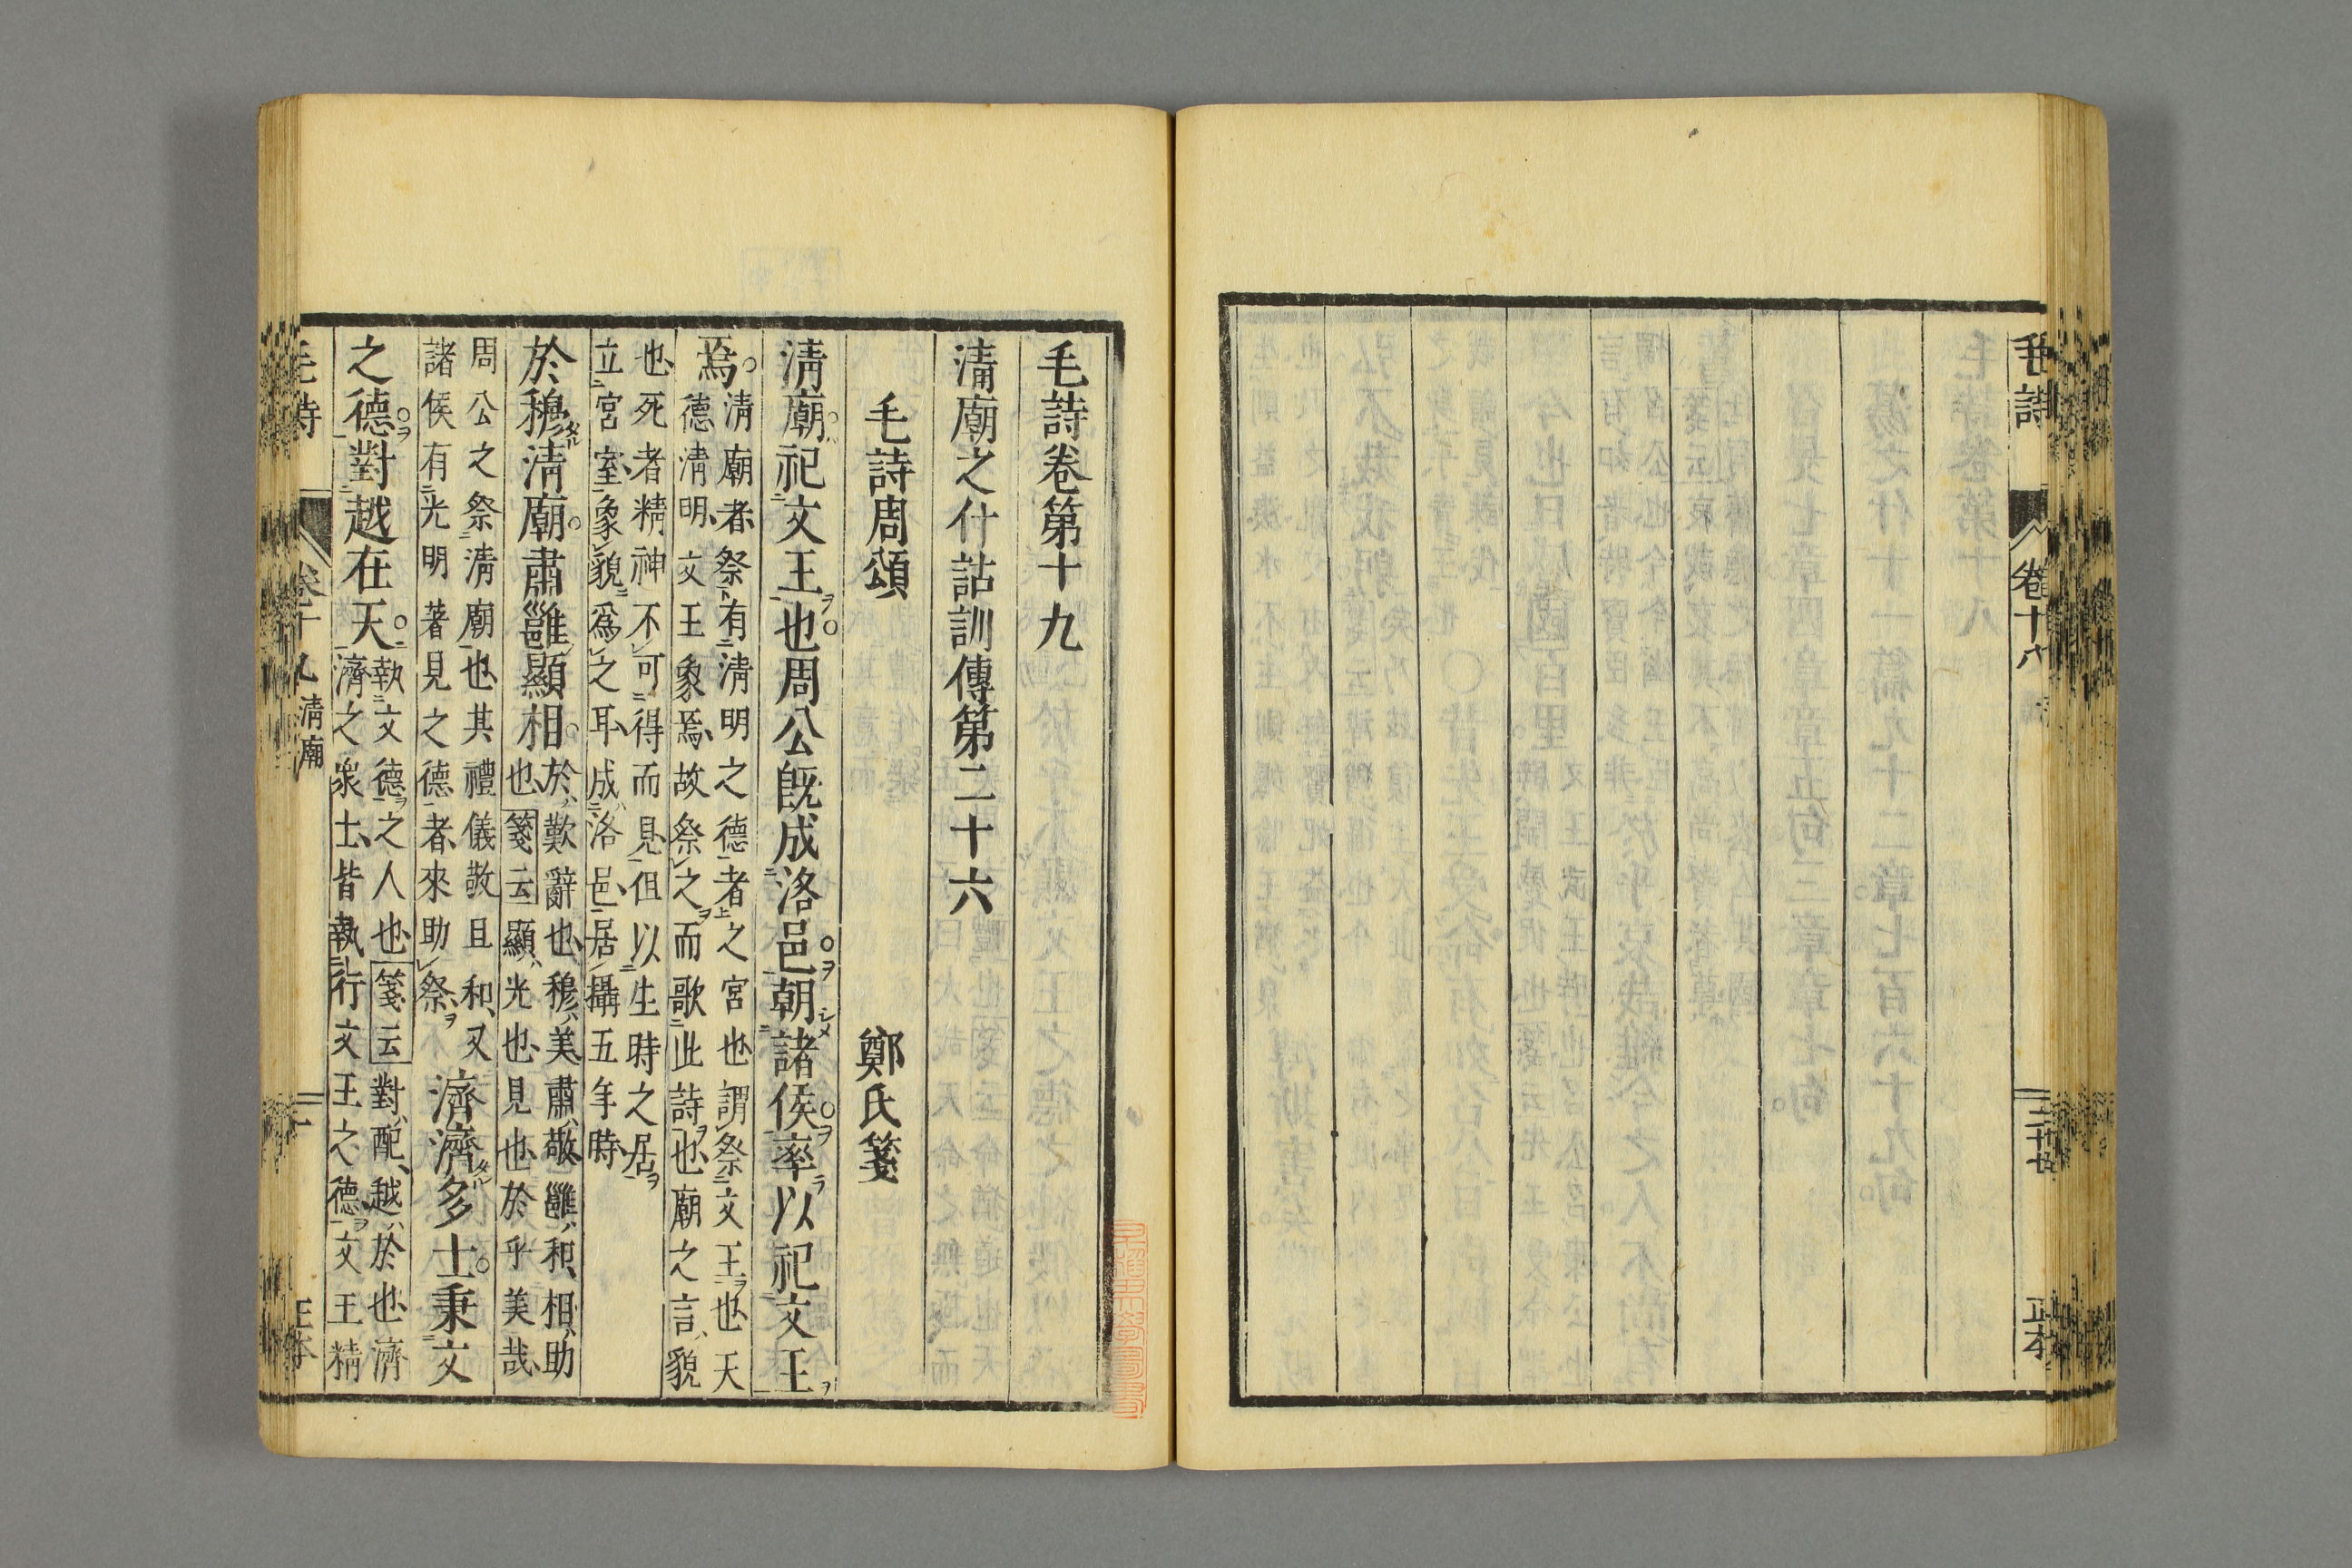 毛詩
卷十八
三十七
正本
毛詩卷第十九
清廟之什詁訓傳第二十六
毛詩周頌
鄭氏箋
清廟祀文王也周公既成洛邑朝諸侯率以祀文王
焉
清廟者祭有清明之德者之宮也謂祭文王也天
德清明文王象焉故祭之而歌此詩也廟之言貌
也死者精神不可得而見但以生時之居
立宮室象貌爲之耳成洛邑居攝五年時
於穆清廟肅雝顯相
於歎辭也穆美肅敬雝和相助
也箋云顯光也見也於乎美哉
周公之祭清廟也其禮儀敬且和又
諸侯有光明著見之德者來助祭
濟濟多士秉文
之德對越在天
執文德之人也箋云對配越於也濟
濟之衆士皆執行文王之德文王精
毛詩
卷十九
清廟
一
正本